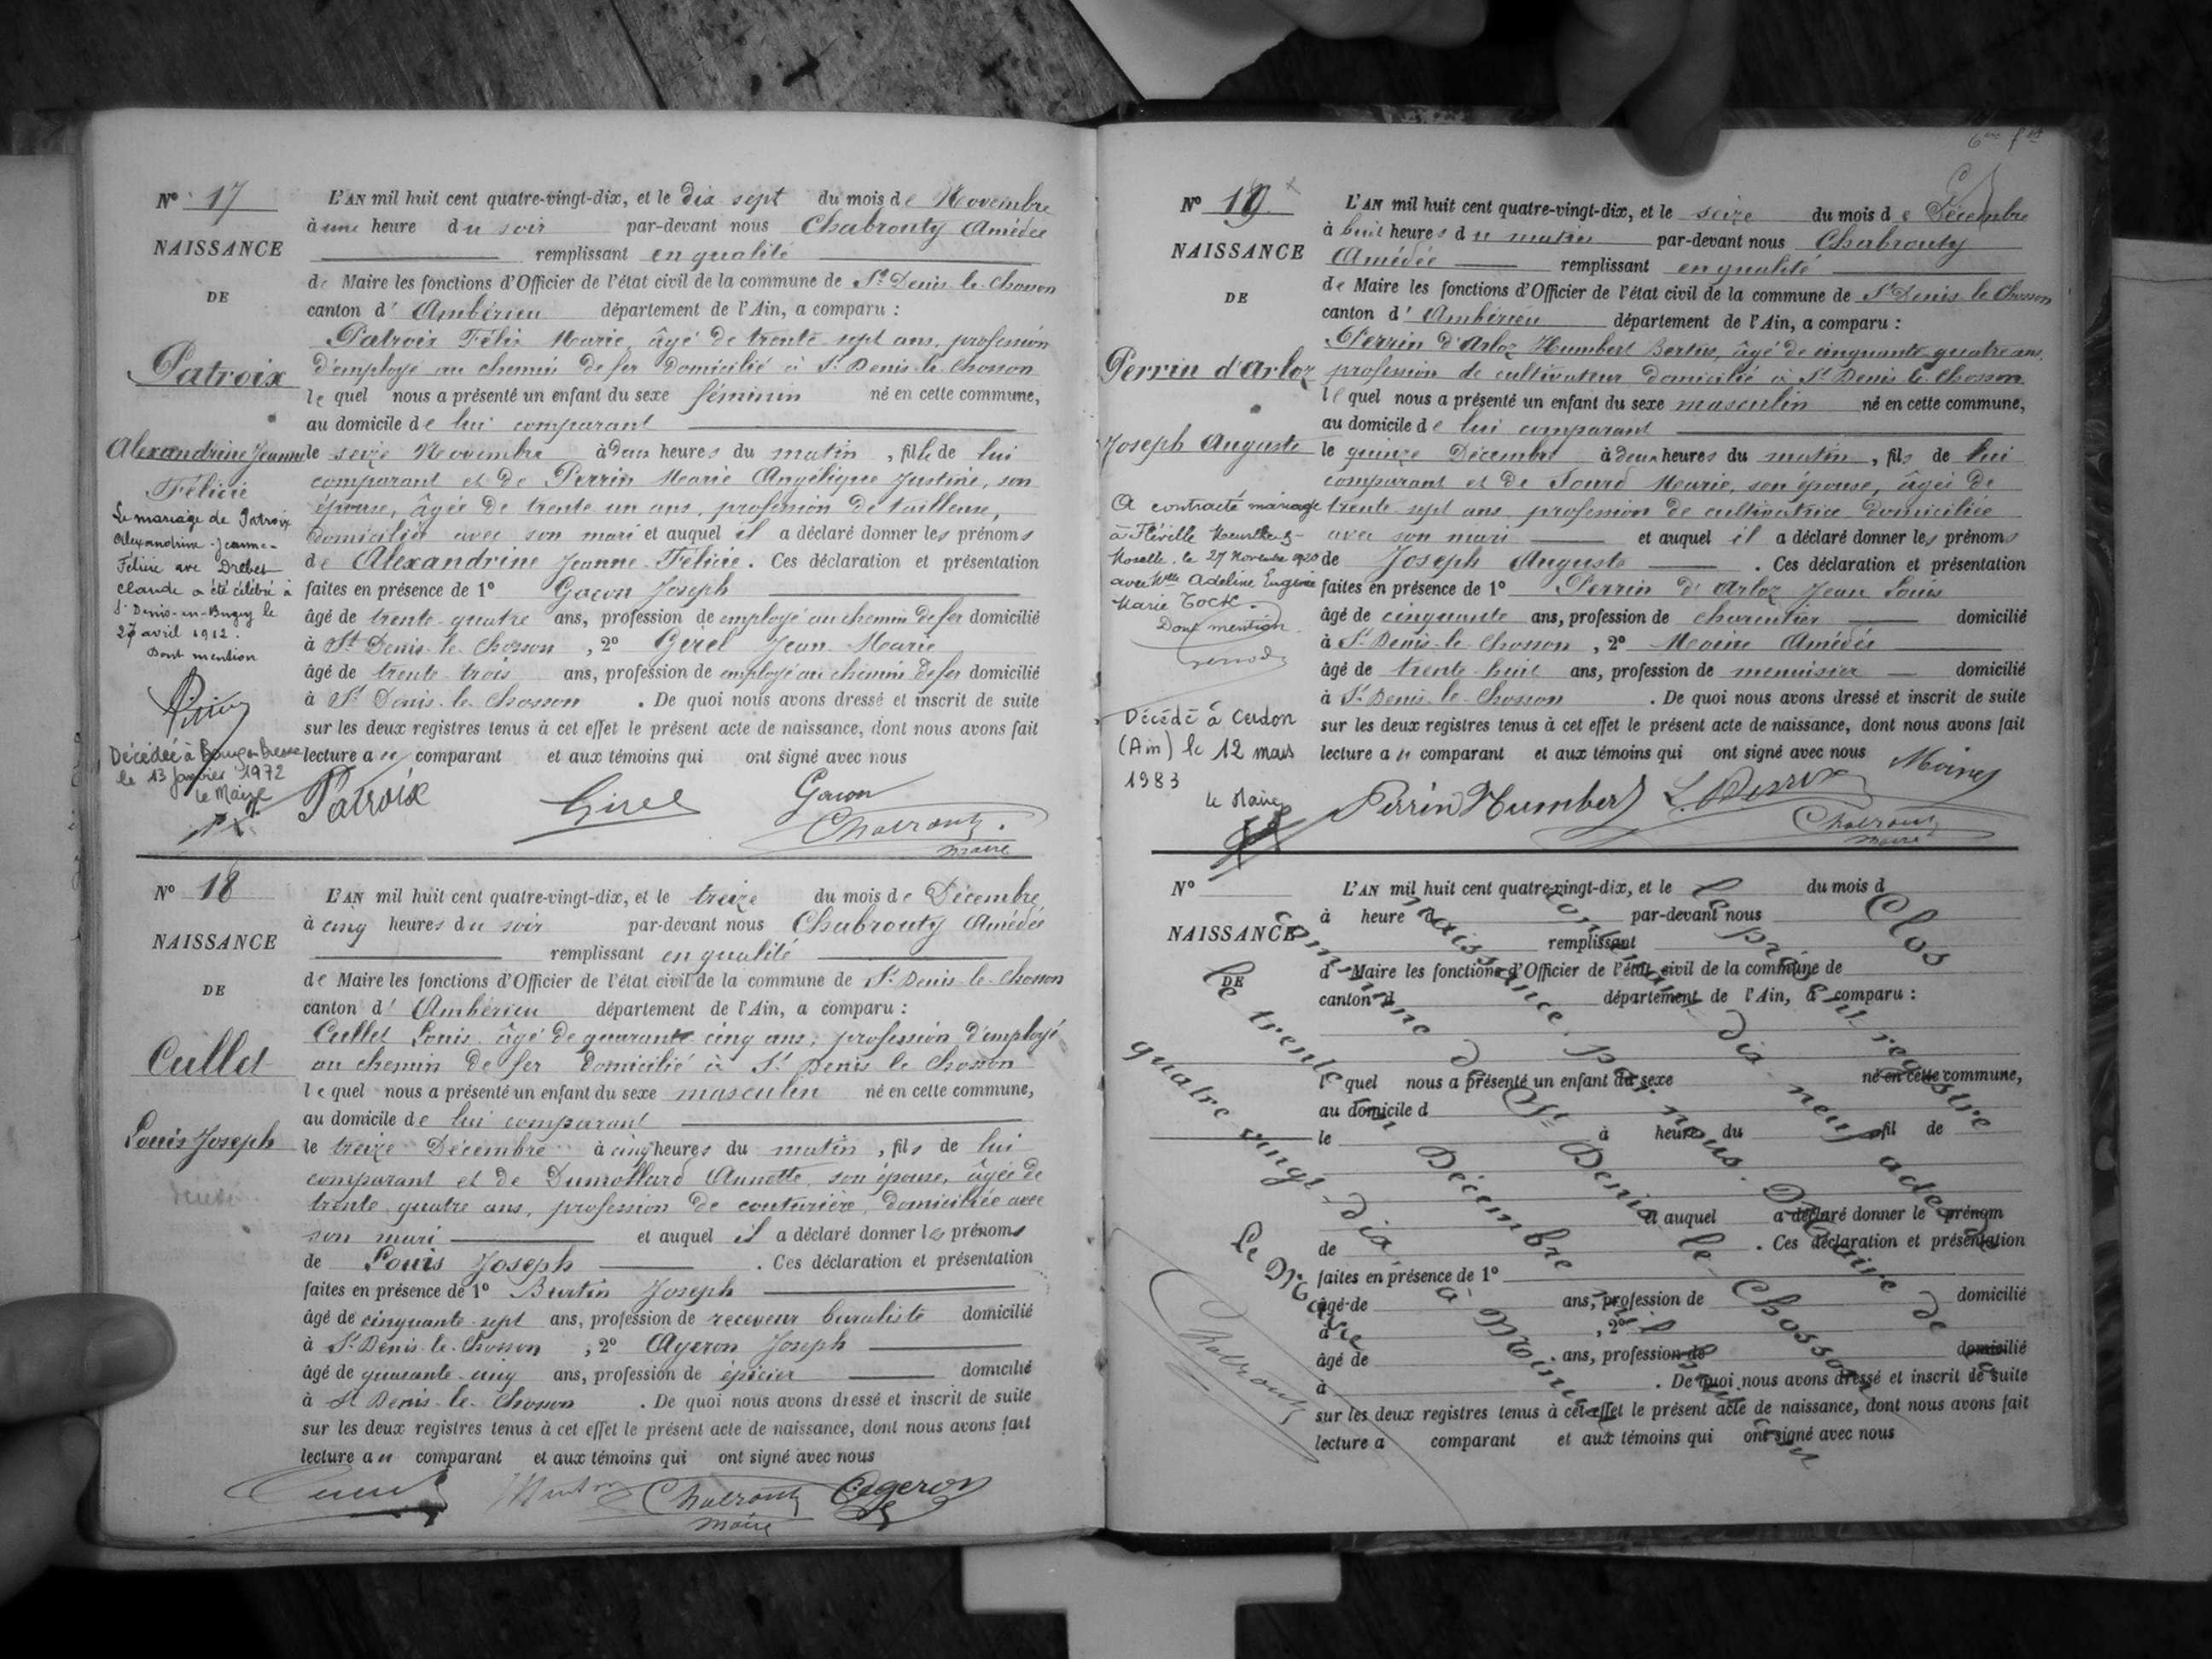 N° 17
NAISSANCE
DE
Patroix
Alexandrine Jeanne
Félicie
Le mariage de Patroix
Alexandrine-Jeanne-
Félicie avec Drebet
Claude a été célébré à
St Denis-en-Bugey le
27 avril 1912.
Dont mention
Décédée à Bourg en Bresse
le 13 janvier 1972
le Maire
L'AN mil huit cent quatre-vingt-dix, et le dix sept du mois de Novembre
à une heure du soir par-devant nous Chabrouty Amédée
remplissant en qualité
de Maire les fonctions d'Officier de l'état civil de la commune de St Denis-le-Chosson
canton d'Ambérieu département de l'Ain, a comparu :
Patroix Félix Marie, âgé de trente sept ans, profession
d'employé au chemin de fer domicilié à St Denis-le-Chosson
lequel nous a présenté un enfant du sexe féminin né en cette commune,
au domicile de lui comparant
le seize Novembre à deux heures du matin, fille de lui
comparant et de Perrin Marie Angélique Justine, son
épouse, âgée de trente un ans, profession de tailleuse,
domiciliée avec son mari et auquel il a déclaré donner les prénoms
de Alexandrine Jeanne-Félicie. Ces déclaration et présentation
faites en présence de 1° Gacon Joseph
âgé de trente-quatre ans, profession de employé au chemin de fer domicilié
à St Denis-le-Chosson, 2° Girel Jean-Marie
âgé de trente-trois ans, profession de employé au chemin de fer domicilié
à St Denis-le-Chosson. De quoi nous avons dressé et inscrit de suite
sur les deux registres tenus à cet effet le présent acte de naissance, dont nous avons fait
lecture au comparant et aux témoins qui ont signé avec nous
Patroix Girel Gacon
Chabrouty
maire
N° 18
NAISSANCE
DE
Cullet
Louis Joseph
L'AN mil huit cent quatre-vingt-dix, et le treize du mois de Décembre,
à cinq heures du soir par-devant nous Chabrouty Amédée
remplissant en qualité
de Maire les fonctions d'Officier de l'état civil de la commune de St Denis-le-Chosson
canton d'Ambérieu département de l'Ain, a comparu :
Cullet Louis, âgé de quarante cinq ans, profession d'employé
au chemin de fer domicilié à St Denis le Chosson
lequel nous a présenté un enfant du sexe masculin né en cette commune,
au domicile de lui comparant
le treize Décembre à cinq heures du matin, fils de lui
comparant et de Dumollard Annette, son épouse, âgée de
trente quatre ans, profession de couturière, domiciliée avec
son mari et auquel il a déclaré donner les prénoms
de Louis Joseph. Ces déclaration et présentation
faites en présence de 1° Burtin Joseph
âgé de cinquante-sept ans, profession de receveur buraliste domicilié
à St Denis-le-Chosson, 2° Ageron Joseph
âgé de quarante-cinq ans, profession de épicier domicilié
à St Denis-le-Chosson. De quoi nous avons dressé et inscrit de suite
sur les deux registres tenus à cet effet le présent acte de naissance, dont nous avons fait
lecture au comparant et aux témoins qui ont signé avec nous
Chabrouty Ageron
maire
N° 19
NAISSANCE
DE
Perrin d'Arloz
Joseph Auguste
A contracté mariage
à Fléville Meurthe &
Moselle, le 27 Novembre 1920
avec Mlle Adeline Eugénie
Marie Tock.
Dont mention
Décédé à Cerdon
(Ain) le 12 mars
1983
le Maire
L'AN mil huit cent quatre-vingt-dix, et le seize du mois de Décembre
à huit heures du matin par-devant nous Chabrouty
Amédée remplissant en qualité
de Maire les fonctions d'Officier de l'état civil de la commune de St Denis le Chosson
canton d'Ambérieu département de l'Ain, a comparu :
Perrin d'Arloz Humbert Bertin, âgé de cinquante-quatre ans,
profession de cultivateur domicilié à St Denis-le-Chosson
lequel nous a présenté un enfant du sexe masculin né en cette commune,
au domicile de lui comparant
le quinze Décembre à deux heures du matin, fils de lui
comparant et de Marie, son épouse, âgée de
trente sept ans, profession de cultivatrice domiciliée
avec son mari et auquel il a déclaré donner les prénoms
de Joseph Auguste. Ces déclaration et présentation
faites en présence de 1° Perrin d'Arloz Jean Louis
âgé de cinquante ans, profession de charpentier domicilié
à St Denis-le-Chosson, 2° Moine Amédée
âgé de trente huit ans, profession de menuisier domicilié
à St Denis-le-Chosson. De quoi nous avons dressé et inscrit de suite
sur les deux registres tenus à cet effet le présent acte de naissance, dont nous avons fait
lecture au comparant et aux témoins qui ont signé avec nous
Perrin Humbert L. Perrin Moine
Chabrouty
maire
N°
NAISSANCE
DE
L'AN mil huit cent quatre-vingt-dix, et le du mois d
à heure d par-devant nous
remplissant
d Maire les fonctions d'Officier de l'état civil de la commune de
canton d département de l'Ain, a comparu :
l quel nous a présenté un enfant du sexe né en cette commune,
au domicile d
le à heure du fil de
et auquel a déclaré donner le prénom
de . Ces déclaration et présentation
faites en présence de 1°
âgé de ans, profession de domicilié
à , 2°
âgé de ans, profession de domicilié
à . De quoi nous avons dressé et inscrit de suite
sur les deux registres tenus à cet effet le présent acte de naissance, dont nous avons fait
lecture a comparant et aux témoins qui ont signé avec nous
Clos
le présent registre
contenant dix neuf actes de
naissance, par nous, Maire de la
commune de St Denis le Chosson
le trente un Décembre mil huit cent
quatre vingt-dix à Minuit
Le Maire
Chabrouty